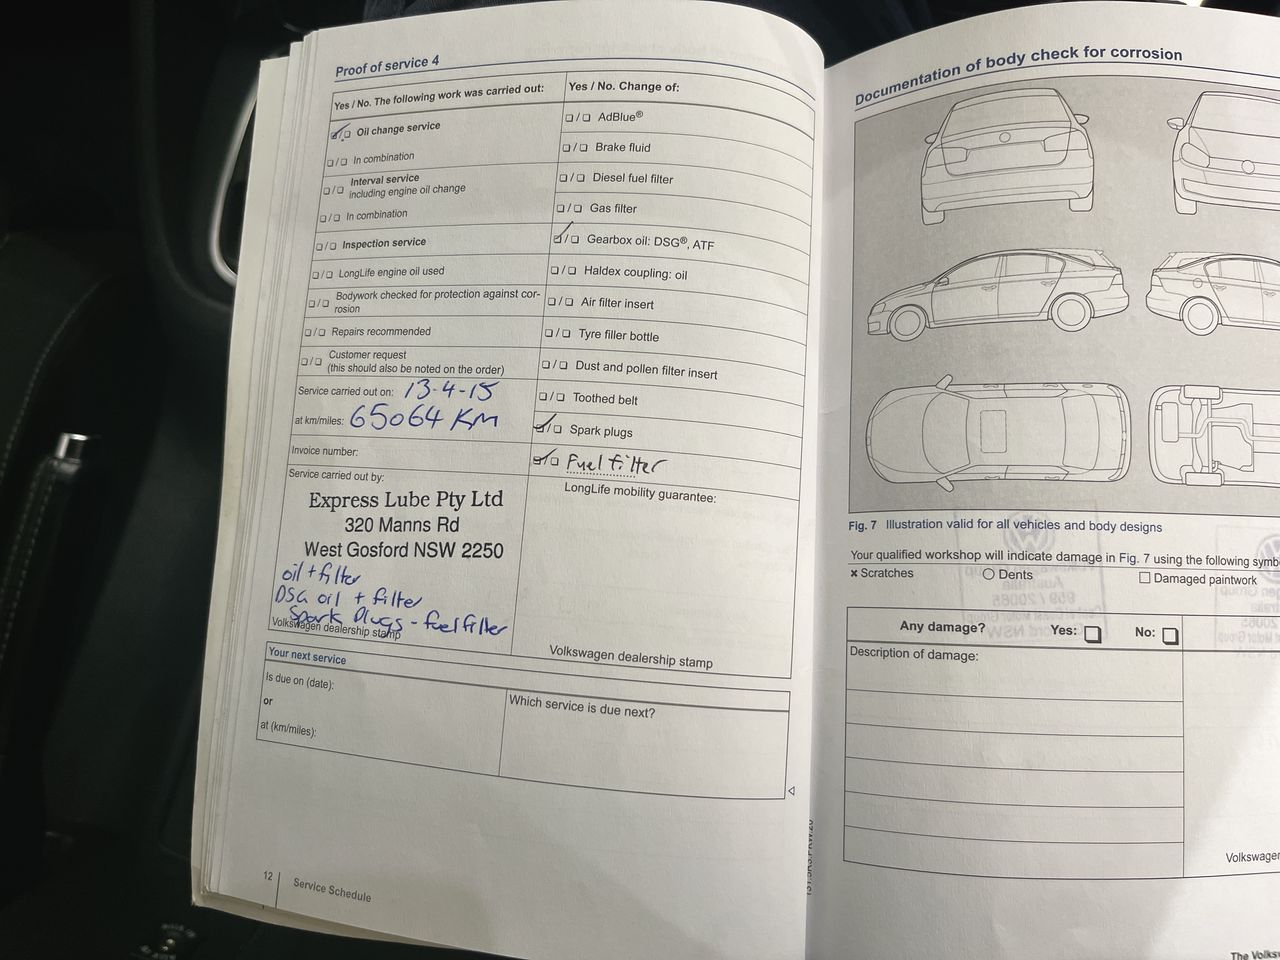 Proof of service 4
Yes / No. The following work was carried out:
Oil change service
In combination
Interval service
including engine oil change
In combination
Inspection service
LongLife engine oil used
Bodywork checked for protection against cor-
rosion
Repairs recommended
Customer request
(this should also be noted on the order)
Service carried out on: 13-4-15
at km/miles: 65064 KM
Invoice number:
Service carried out by:
Express Lube Pty Ltd
320 Manns Rd
West Gosford NSW 2250
oil + filter
DSG oil + filter
Spark Plugs - fuel filter
Volkswagen dealership stamp
Yes / No. Change of:
AdBlue®
Brake fluid
Diesel fuel filter
Gas filter
Gearbox oil: DSG®, ATF
Haldex coupling: oil
Air filter insert
Tyre filler bottle
Dust and pollen filter insert
Toothed belt
Spark plugs
Fuel filter
LongLife mobility guarantee:
Volkswagen dealership stamp
Your next service
Is due on (date):
or
at (km/miles):
Which service is due next?
12
Service Schedule
Documentation of body check for corrosion
Fig. 7 Illustration valid for all vehicles and body designs
Your qualified workshop will indicate damage in Fig. 7 using the following symb
× Scratches
Dents
Damaged paintwork
Any damage?
Yes:
No:
Description of damage:
Volkswagen
The Volks